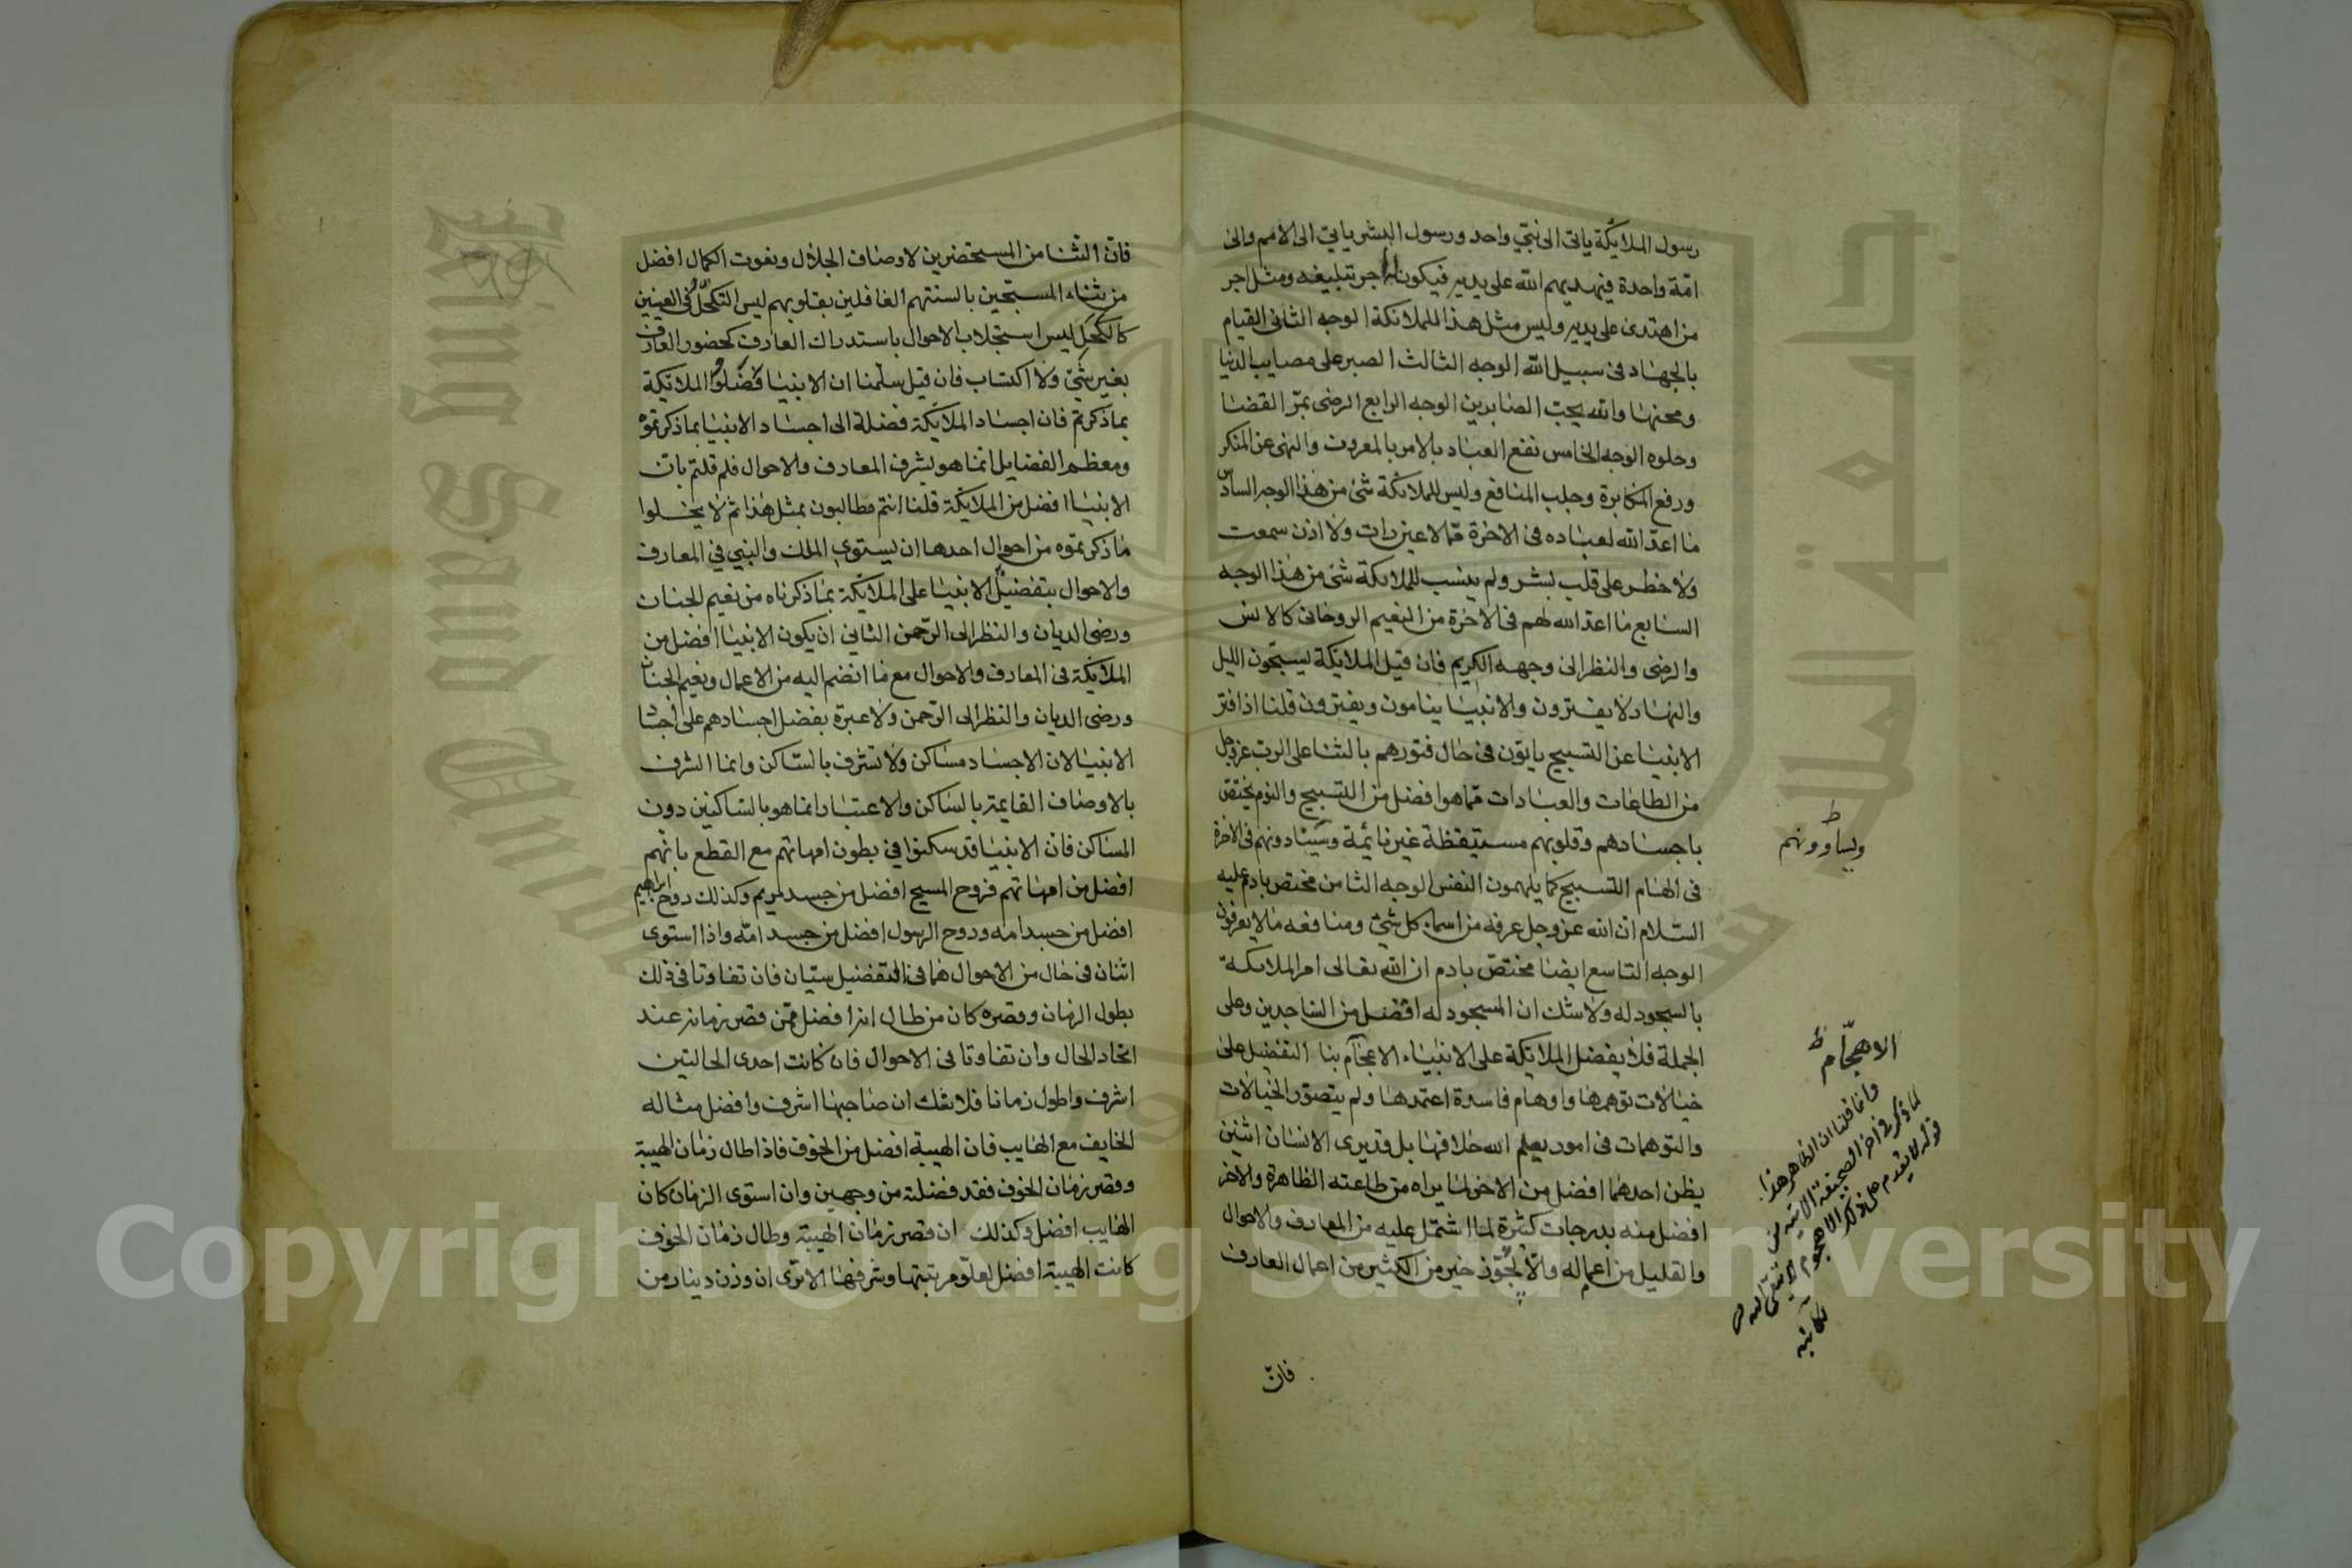 رسول الملائكة ياتى الى نبيّ واحد ورسول البشر ياتي الى الامم والى
امّة واحدة فيهديهم الله على يديه فيكون له اجر تبليغه ومثل اجر
من اهتدى على يديه وليس مثل هذا للملائكة الوجه الثانى القيام
بالجهاد فى سبيل الله الوجه الثالث الصبر على مصايب الدنيا
ومحنها والله يحب الصابرين الوجه الرابع الرضى بمرّ القضا
وحلوه الوجه الخامس نفع العباد بالامر بالمعروف والنهى عن المنكر
ورفع المكابرة وجلب المنافع وليس للملائكة شئ من هذا الوجه السادس
ما اعدّ الله لعباده فى الاخرة ممّا لا عين رات ولا اذن سمعت
ولا خطر على قلب بشر ولم ينسب للملائكة شئ من هذا الوجه
السابع ما اعد الله لهم فى الاخرة من النعيم الروحانى كالانس
والرضى والنظر الى وجهه الكريم فان قيل الملائكة يسبحون الليل
والنهار لا يفترون والانبيا ينامون ويفترون قلنا اذا فتر
الانبيا عن التسبيح ياتون فى حال فتورهم بالثنا على الرب عزوجل
من الطاعات والعبادات ممّا هوا فضل من التسبيح والنوم يختص
باجسادهم وقلوبهم مستيقظة غير نائمة وسيسادونهم فى الاخرة
فى الهام التسبيح كما يلهمون النفس الوجه الثامن مختص بادم عليه
السلام ان الله عز وجل عرفه من اسماء كل شئ ومنافعه ما لا يعرفون
الوجه التاسع ايضا مختص بادم ان الله تعالى امر الملائكة
بالسجود له ولا شك ان المسجود له افضل من الساجدين وعلى
الجملة فلا يفضل الملائكة على الانبياء الا هجّام بنا التفضيل على
خيالات توهمها واوهام فاسدة اعتمدها ولم يتصوّر الخيالات
والتوهمات فى امور يعلم الله خلافها بل قد يرى الانسان اثنين
يظن احدهما افضل من الاخر لما يراه من طاعته الظاهرة والاخر
افضل منه بدرجات كثيرة لما اشتمل عليه من المعارف والاحوال
والقليل من اعماله خير من الكثير من اعمال العارف
فان
ويساوونهم
الا هجّام
وانما قلنا ان الظاهر هذا
فان الثنا من المستحضرين لاوصاف الجلال ونعوت الكمال افضل
من ثناء المسبّحين بالسنتهم الغافلين بقلوبهم ليس التكحّل فى العينين
كالكحل ليس استجلاب الاحوال باستدراك العارف كحضور العارف
بغير شئ ولا اكتساب فان قيل سلّمنا ان الانبيا فضلوا الملائكة
بما ذكرتم فان اجساد الملائكة فضلة الى اجساد الانبيا بما ذكرتموه
ومعظم الفضايل انما هو بشرف المعارف والاحوال فلم قلتم بان
الانبيا افضل من الملائكة قلنا انتم مطالبون بمثل هذا ثم لا يخلوا
ما ذكرتموه من احوال احدها ان يستوي الملك والنبي في المعارف
والاحوال بتفضيل الانبيا على الملائكة بما ذكرناه من نعيم الجنان
ورضى الديان والنظر الى الرّحمن الثاني ان يكون الانبيا افضل من
الملائكة فى المعارف والاحوال مع ما انضم اليه من الاعمال ونعيم الجنان
ورضى الديان والنظر الى الرّحمن ولا عبرة بفضل اجسادهم على اجساد
الانبيا لان الاجساد مساكن ولا تشرف بالسّاكن وانما الشرف
بالاوصاف القايمة بالساكن والاعتبار انما هو بالساكنين دون
المساكن فان الانبيا قد سكنوا في بطون امهاتهم مع القطع بانّهم
افضل من امهاتهم فروح المسيح افضل من جسد مريم وكذلك روح ابراهيم
افضل من جسد امه وروح الرسول افضل من جسد امّه واذا استوى
اثنان فى حال من الاحوال فهما فى التفضيل سيّان فان تفاوتا فى ذلك
بطول الزمان وقصره كان من طال افضل ممّن قصر زمانه عند
اتحاد الحال وان تفاوتا فى الاحوال فان كانت احدى الحالتين
اشرف واطول زمانا فلا شك ان صاحبها اشرف وافضل مثاله
الخايف مع الهايب فان الهيبة افضل من الخوف فاذا طال زمان الهيبة
وقصر زمان الخوف فقد فضلته من وجهين وان استوى الزمان كان
الهايب افضل وكذلك ان قصر زمان الهيبة وطال زمان الخوف
كانت الهيبة افضل لعلوّ مرتبتها وشرفها الا ترى ان وزن دينار من
جامعة الملك سعود
King Saud University
Copyright © King Saud University